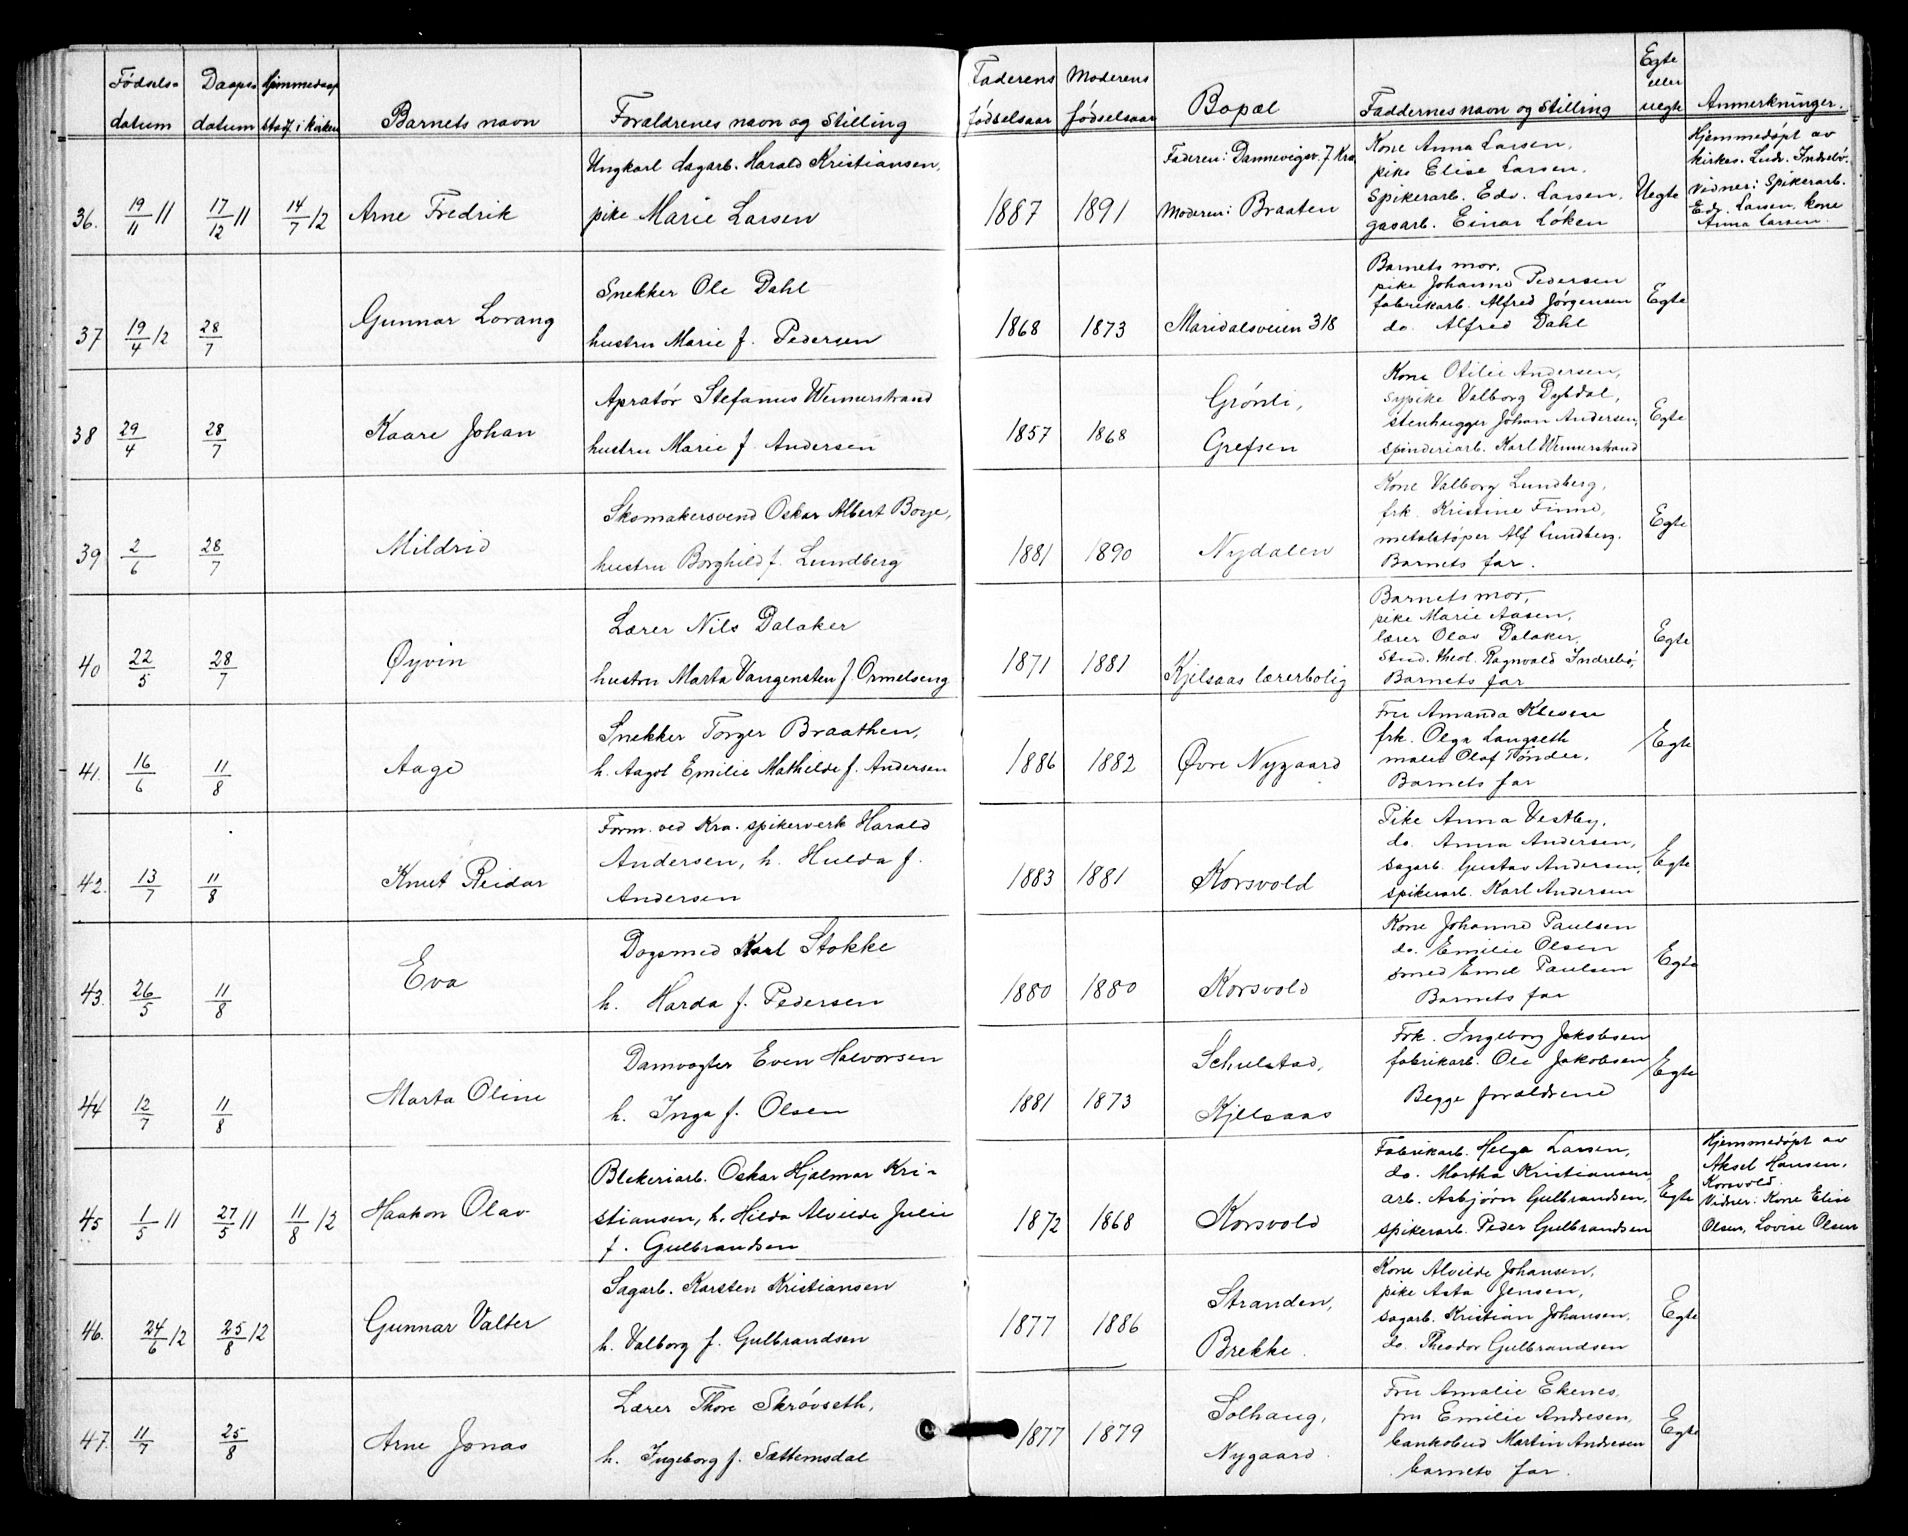 Fødsels- datum | Daaps- datum | Hjemmedaap stadf. i kirken | Barnets navn | Forældrenes navn og Stilling | Faderens fødselsaar | Moderens fødselsaar | Bopæl | Faddernes navn og Stilling | Egte eller uegte | Anmerkninger.
36. 19/11 11 | 17/12 11 | 14/7 12 | Arne Fredrik
Ungkarl dagarb. Harald Kristiansen,
pike Marie Larsen
1887 | 1891
Faderen: Dannevigsv. 7 Kra.
Moderen: Braaten
Kone Anna Larsen,
pike Elise Larsen,
Spikerarb. Edv. Larsen,
gasarb. Einar Løken
Uegte
Hjemmedøpt av
kirkes. Ludv. Indrebø.
Vidner: Spikerarb.
Edv. Larsen, kone
Anna Larsen.
37 19/4 12 | 28/7 | Gunnar Lorang
Snekker Ole Dahl
hustru Marie f. Pedersen
1868 | 1873
Maridalsveien 318
Barnets mor,
pike Johanne Pedersen
fabrikarb. Alfred Jørgensen
do. Alfred Dahl
Egte
38 29/4 | 28/7 | Kaare Johan
Apratør Stefanus Wennerstrand
hustru Marie f. Andersen
1857 | 1868
Grønli,
Grefsen
Kone Otilie Andersen,
sypike Valborg Dybdal,
stenhugger Johan Andersen,
spinderiarb. Karl Wennerstrand
Egte
39 2/6 | 28/7 | Mildrid
Skomakersvend Oskar Albert Borje,
hustru Borghild f. Lundberg
1881 | 1890
Nydalen
Kone Valborg Lundberg,
frk. Kristine Finne,
metalstøper Alf Lundberg.
Barnets far.
Egte
40 22/5 | 28/7 | Øyvin
Lærer Nils Dalaker
hustru Marta Vangensten f. Ormelseng
1871 | 1881
Kjelsaas lærerbolig
Barnets mor,
pike Marie Aasen,
lærer Olav Dalaker,
Stud. theol. Ragnvald Indrebø,
Barnets far
Egte
41. 16/6 | 11/8 | Aage
Snekker Torger Braathen,
h. Aagot Emilie Mathilde f. Andersen
1886 | 1882
Øvre Nygaard
Fru Amanda Klevene
frk. Olga Langseth
maler Olaf Tønder,
Barnets far
Egte
42. 13/7 | 11/8 | Knut Reidar
Form. ved Kra. spikerverk Harald
Andersen, h. Hulda f.
Andersen
1883 | 1881
Korsvold
Pike Anna Vestby,
do. Anna Andersen,
sagarb. Gustav Andersen,
spikerarb. Karl Andersen
Egte
43. 26/5 | 11/8 | Eva
Dogsmed Karl Stokke
h. Harda f. Pedersen
1880 | 1880
Korsvold
Kone Johanne Paulsen
do. Emilie Olsen
smed Emil Paulsen
Barnets far
Egte
44 12/7 | 11/8 | Marta Oline
Damvogter Even Halvorsen
h. Inga f. Olsen
1881 | 1873
Schulstad,
Kjelsaas
Frk. Ingeborg Jakobsen
fabrikarb. Ole Jakobsen
Begge forældrene
Egte
45 1/5 11 | 27/5 11 | 11/8 12 | Haakon Olav
Blekeriarb. Oskar Hjalmar Kri-
stiansen, h. Hilda Alvilde Julie
f. Gulbrandsen
1872 | 1868
Korsvold
Fabrikarb. Helga Larsen,
do. Martha Kristiansen
arb. Asbjørn Gulbrandsen,
spikerarb. Peder Gulbrandsen
Egte
Hjemmedøpt av
Aksel Hansen,
Korsvold.
Vidner: Kone Elise
Olsen, Lovise Olsen
46. 24/6 12 | 25/8 12 | Gunnar Valter
Sagarb. Karsten Kristiansen
h. Valborg f. Gulbrandsen
1877 | 1886
Stranden,
Brekke.
Kone Alvilde Johansen,
pike Asta Jensen,
sagarb. Kristian Johansen,
do. Theodor Gulbrandsen
Egte
47. 11/7 | 25/8 | Arne Jonas
Lærer Thore Skrøvseth,
h. Ingeborg f. Sættemsdal
1877 | 1879
Solhaug,
Nygaard.
Fru Amalie Ekenes,
fru Emilie Andresen,
bankobud Martin Andresen
barnets far.
Egte